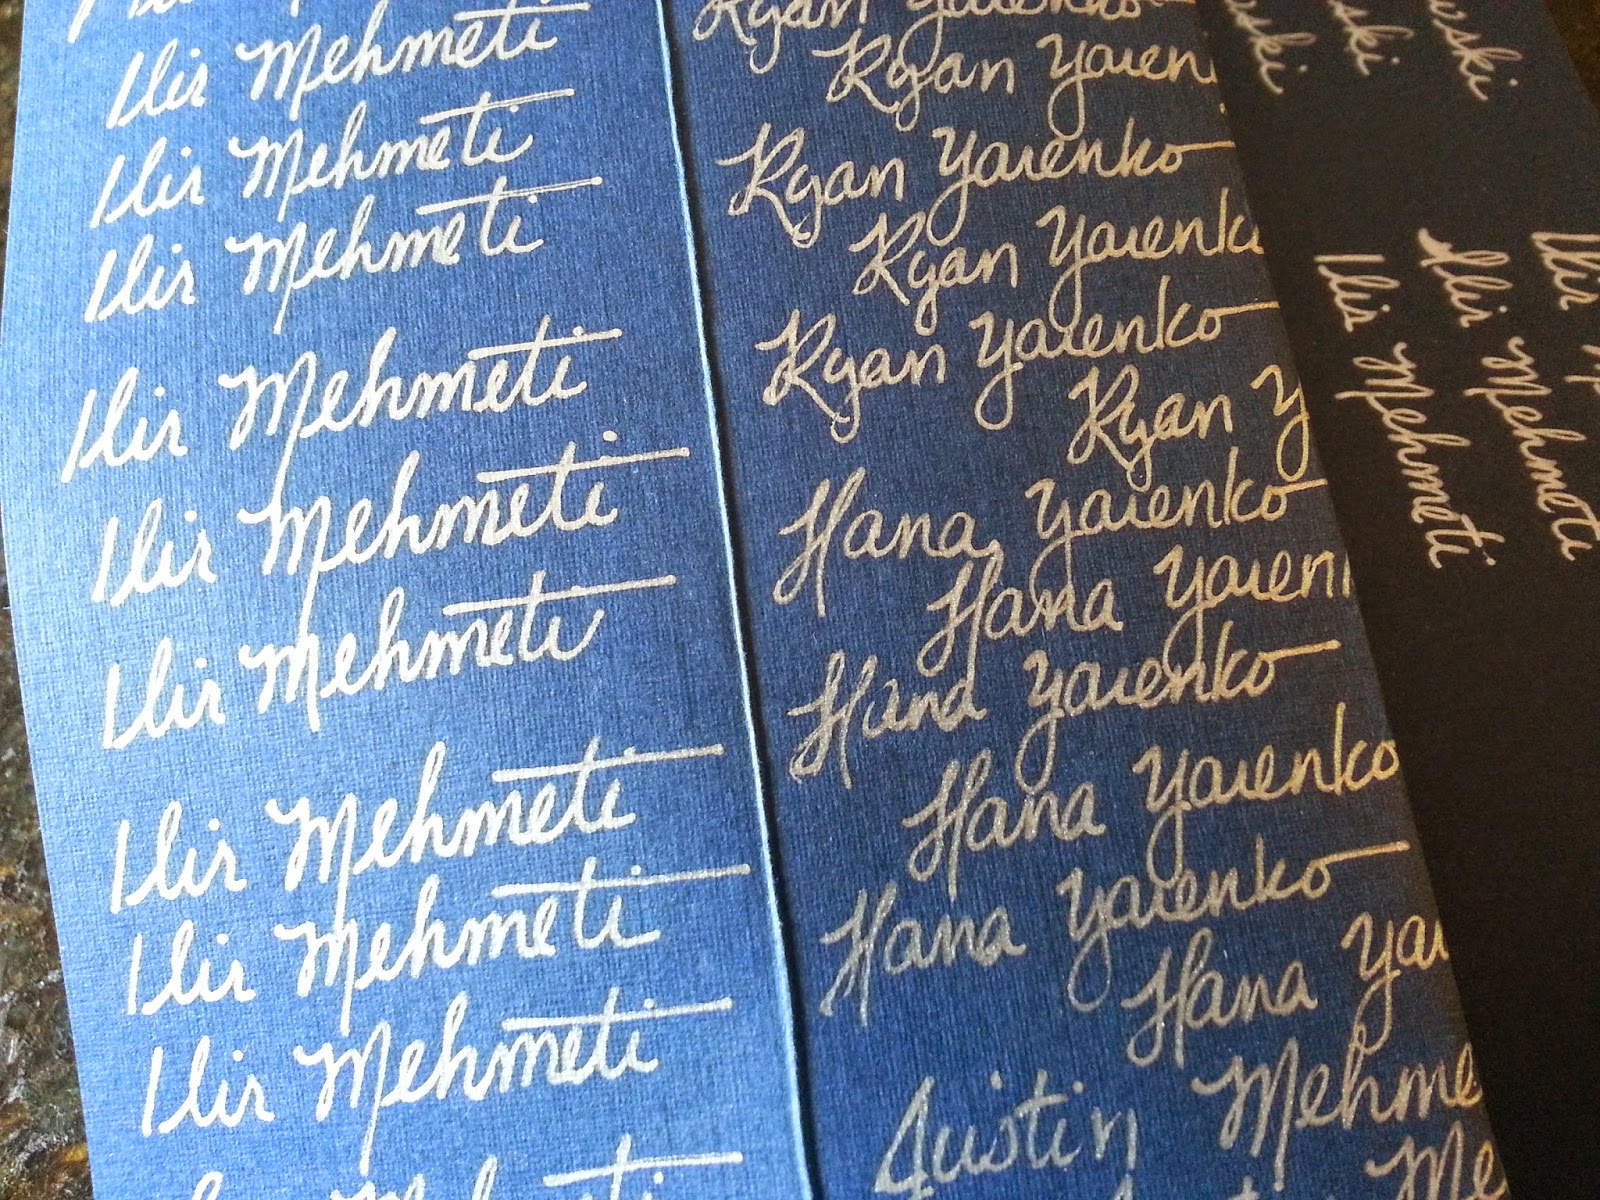 Ilir Mehmeti
Ilir Mehmeti
Ilir Mehmeti
Ilir Mehmeti
Ilir Mehmeti
Ilir Mehmeti
Ilir Mehmeti
Ilir Mehmeti
Ilir Mehmeti
Mehmeti
Ryan Yarenko
Ryan Yaren
Ryan Yarenko
Ryan Yarenk
Ryan Yarenko
Ryan Y
Hana Yarenko
Hana Yaren
Hana Yarenko
Hana Yarenko
Hana Yarenko
Hana Ya
Justin Mehme
Me
wski
ski
ski
Ilir
Ilir Mehmeti
Ilir Mehmeti